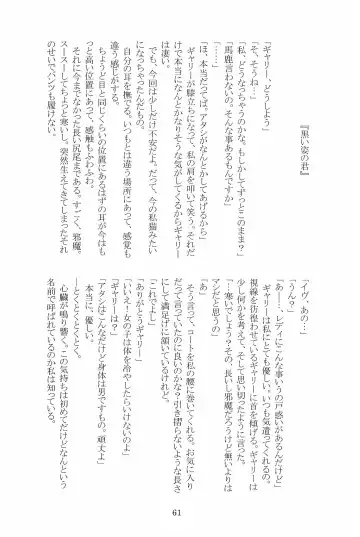 『黒い姿の君』
「ギャリー、どうしよう」
「そ、そうね…」
「私、どうなっちゃうのかな。もしかしてずっとこのまま？」
「馬鹿言わないの。そんな事あるもんですか」
「……」
「ほ、本当だってば。アタシがなんとかしてあげるから」
ギャリーが膝立ちになって、私の肩を叩いて笑う。それだ
けで本当になんとかなりそうな気がしてくるからギャリー
は凄い。
でも、今回は少しだけ不安だよ。だって、今の私猫みたい
になっちゃったんだもの。
自分の耳を撫でる。いつもとは違う場所にあって、感覚も
違う感じがする。
ちょうど目と同じくらいの位置にあるはずの耳が今はも
っと高い位置にあって、感触もふわふわ。
それに今までなかった長い尻尾まである。すごく、邪魔。
スースーしてちょっと寒いし。突然生えてきてしまったそれ
のせいでパンツも履けない。
「イヴ、あの…」
「うん？」
「あー…、レディにこんな事いうの戸惑いがあるんだけど」
ギャリーは私にとても優しい。いつも気遣ってくれるの。
視線を彷徨わせているギャリーに首を傾げる。ギャリーは
少し何かを考えて、思い切ったように言った。
「…寒いでしょう？その、長いし邪魔だろうけど無いよりは
マシだと思うの」
「あ」
そう言って、コートを私の腰に巻いてくれる。お気に入り
だって言っていたのに良いのかな？引き摺らないような長さ
にして満足げに頷いているけれど。
「これでよし」
「ありがとうギャリー」
「いいえ！女の子は体を冷やしたらいけないのよ」
「ギャリーは？」
「アタシはこんなだけど身体は男ですもの。頑丈よ」
本当に、優しい。
とくとくとくとく。
心臓が鳴り響く。この気持ちは初めてだけどなんという
名前で呼ばれているのか私は知っている。
61